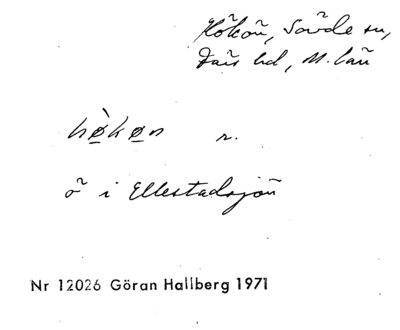 Hökön, Sövde sn,
Färs hd, M. län
hø̀køn n.
ö i Ellestadsjön
Nr 12026 Göran Hallberg 1971